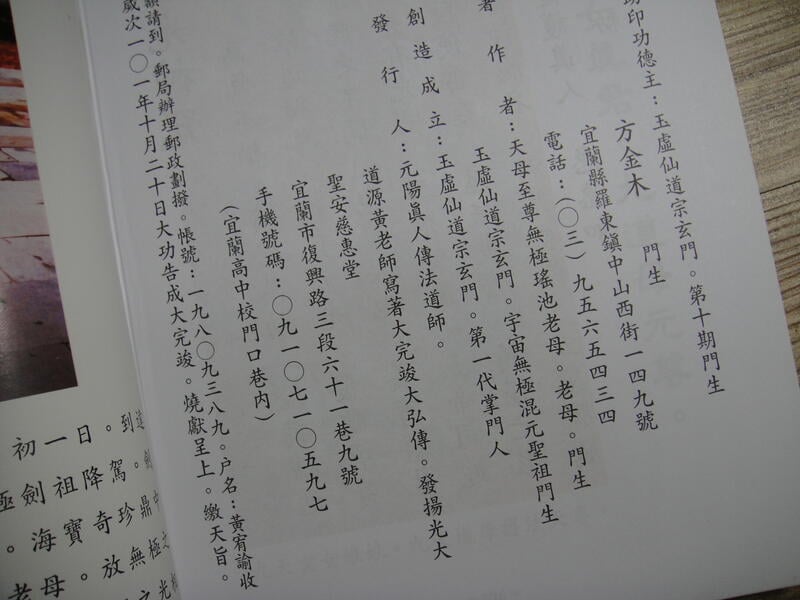 助印功德主：玉虛仙道宗玄門。第十期門生
方金木 門生
宜蘭縣羅東鎮中山西街一四九號
電話：(〇三)九五六五四三四
著作者：天母至尊無極瑤池老母。老母。門生
玉虛仙道宗玄門。宇宙無極混元聖祖門生
創造成立：玉虛仙道宗玄門。第一代掌門人
發行人：元陽眞人傳法道師。
道源黃老師寫著大完竣大弘傳。發揚光大
聖安慈惠堂
宜蘭市復興路三段六十一巷九號
手機號碼：〇九一〇七一〇五九九七
(宜蘭高中校門口巷內)
請到。郵局辦理郵政劃撥。帳號：一九八〇九三八九。户名：黃宥諭收
歲次一〇一年十月二十日大功告成大完竣。燒獻呈上。繳天旨。
初一日。到達
極劍祖降駕。劍
。海寶奇珍鼎中
老母。放無極之
之光